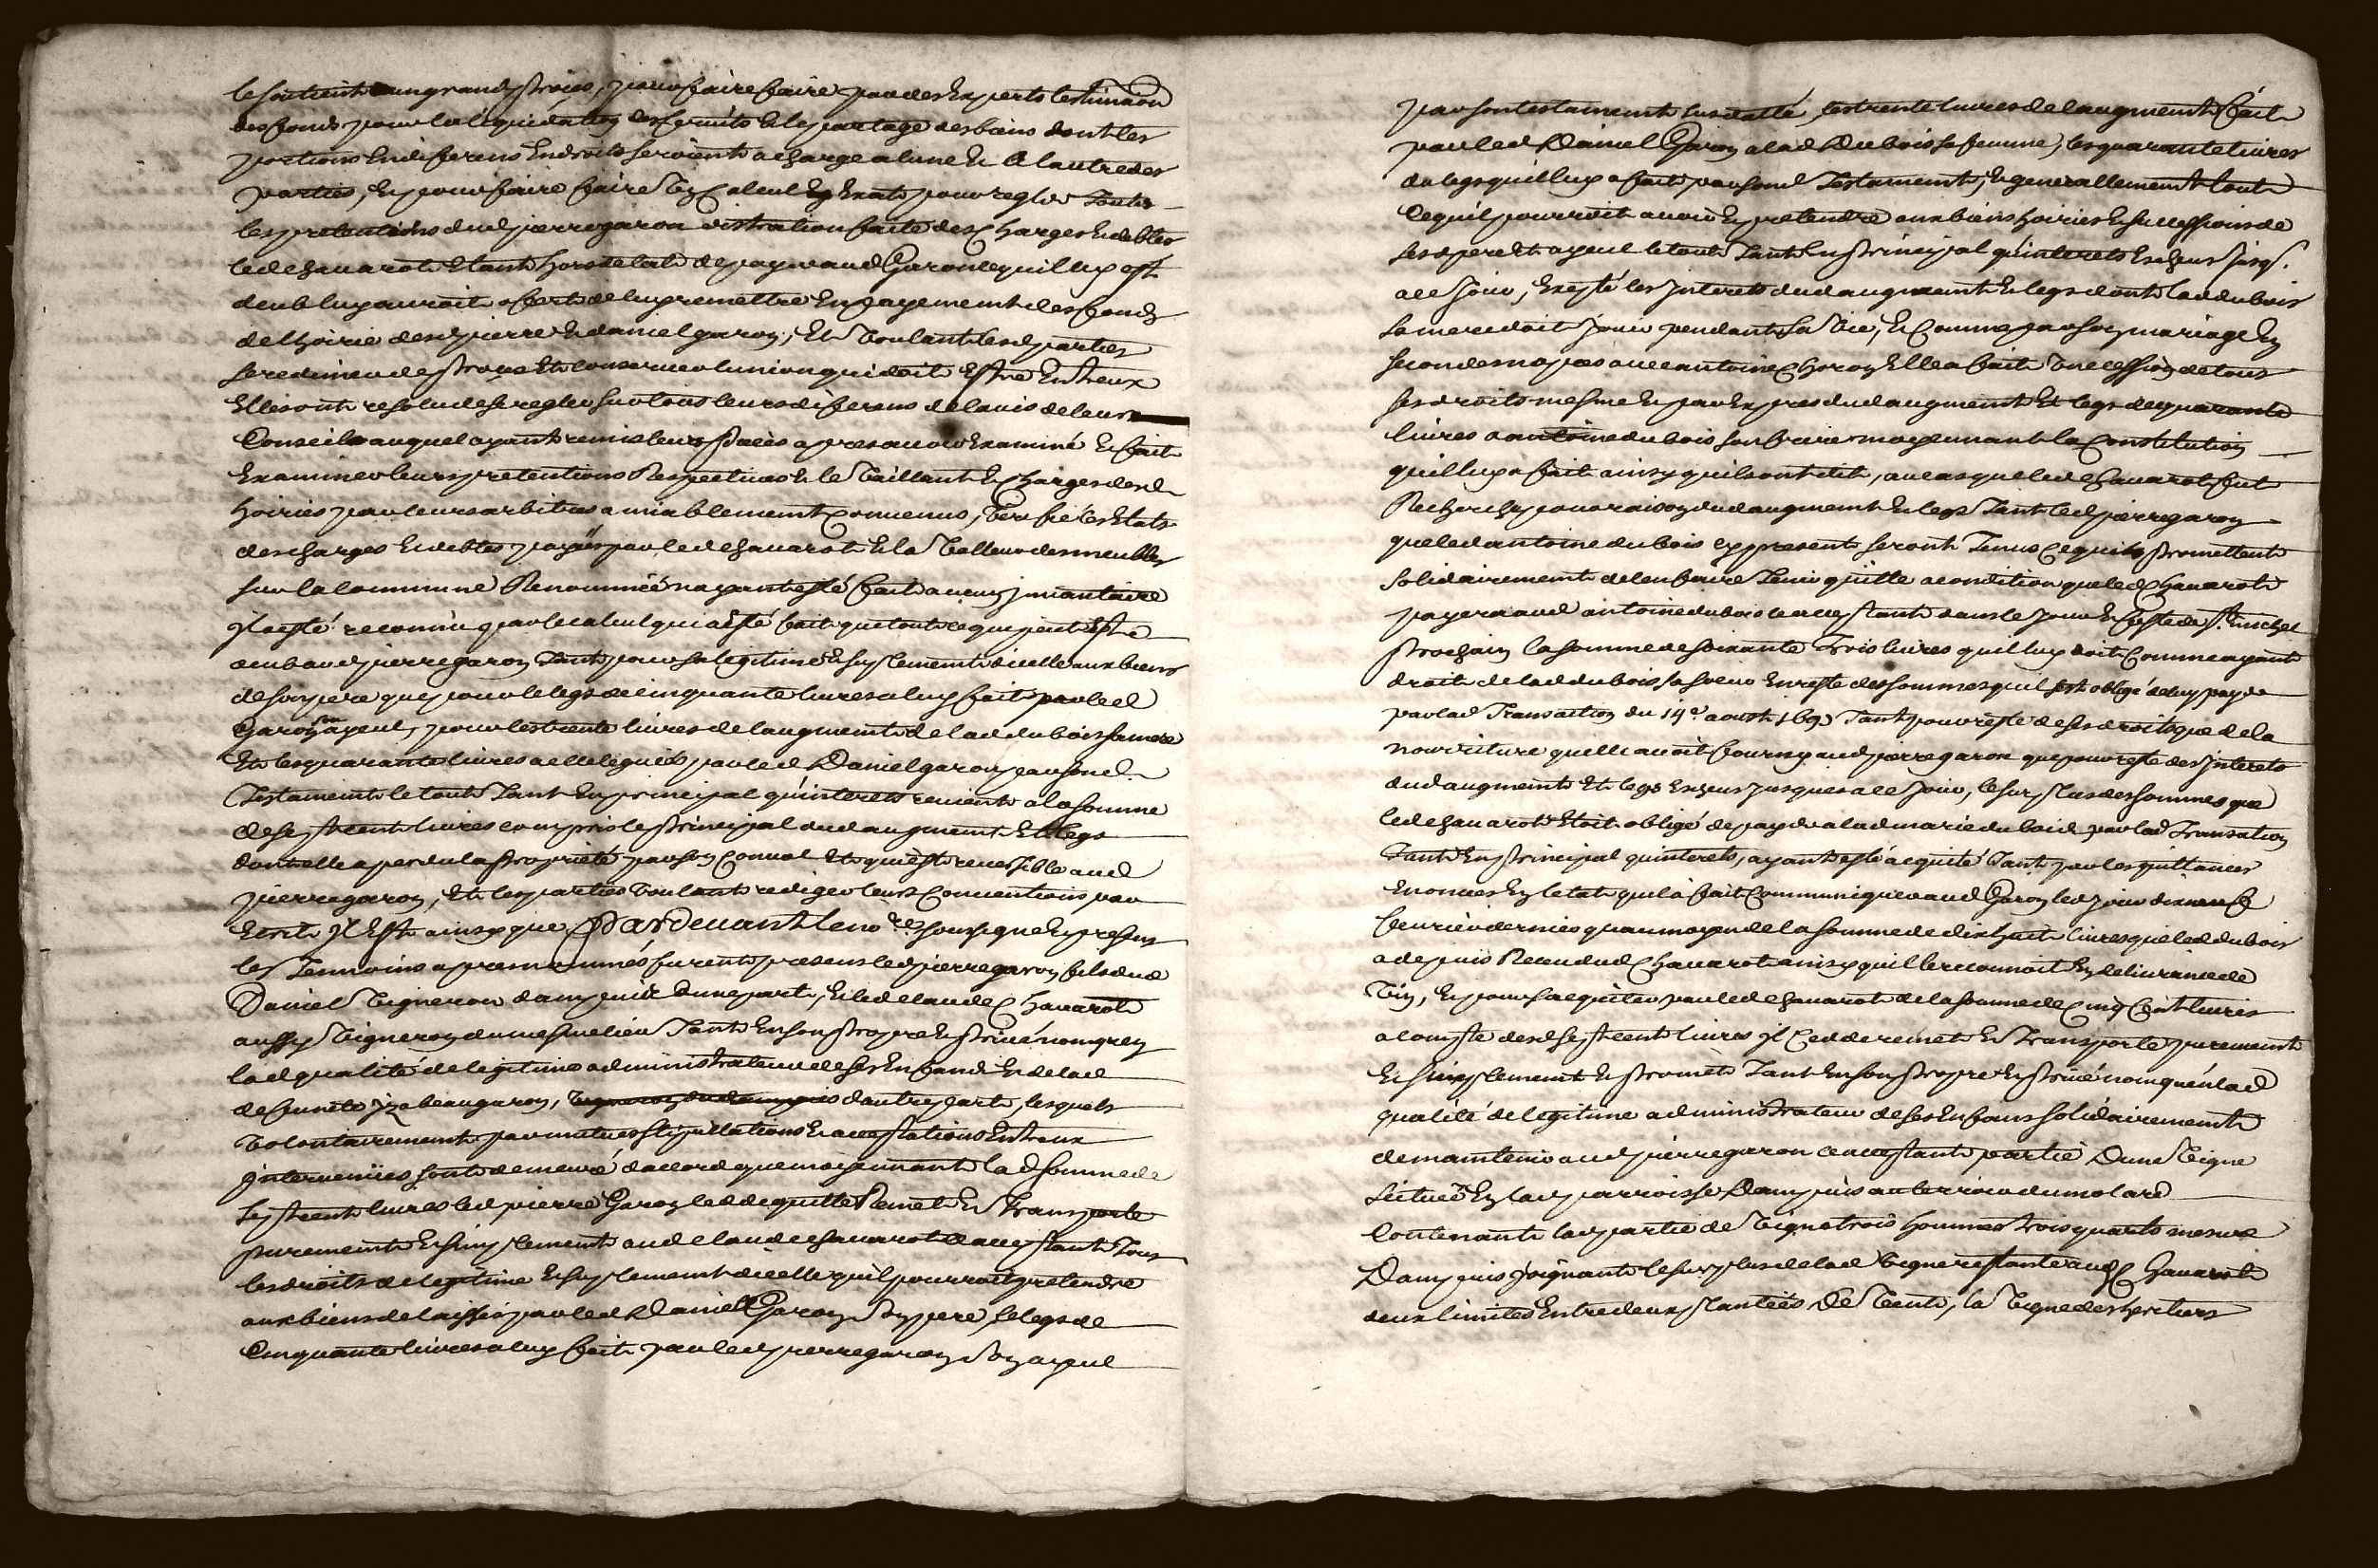 le soutient un grand proces, pour faire faire par des Experts lestimaon
des fonds pour la liquidation des fruits & le partage des biens dont les
portions En diferens Endroits seroient a charge a lune Et A lautre des
parties, Et pour faire faire Un Calcul Exate pour regler Toutes
les pretentions dud pierre garon distration faite des Charges Et debtes
led chavarot Etant hors detat de payer aud Garon ce quil luy est
deub luy auroit offert de luy remettre En payement des fonds
de lhoirie desd pierre Et daniel garon, Et Voulant lesd parties
se redimer de proces Et Conserver lunion qui doit Estre Entreux
Elles ont resolu de se regler sur tous leurs diferens de lavis de leurs
Conseils auquel ayant remis leurs pieces apres avoir Examiné Et fait
Examiner leurs pretentions Respectives Et le Vaillant Et Charges desd
hoiries par leurs arbitres amiablement Convenus, Verifié les Etats
des charges Et debtes payées par led chavarot Et la Valleur des meubles
sur la commune Renommée nayant esté fait aucun jnvantaire
jl a esté reconnu par le calcul qui a esté fait que tout ce qui peut Estre
deub aud pierre garon Tant pour sa legitime Et suplement dicelle aux biens
de son pere que pour le legs de cinquante livres a luy fait par led
Garon son ayeul, pour les trente livres de laugment de lad dubois sa mere
Et les quarante livres a elle leguées par led Daniel garon par sond
Testament le tout Tant En principal quinterets revient a la somme
de sept cent livres compris le principal dud augment Et legs
dont elle a perdu la proprieté par son Convol Et qui est reversible aud
pierre garon, Et les parties Voulant rediger leurs Conventions par
Ecrit jl Est ainsy que Pardevant le nore soussigné Et presens
les Temoins apres nommés furent presens led pierre garon fils dud
Daniel Vigneron dampuis dune part, Et led claude Chavarot
aussy Vigneron du mesme lieu Tant En son propre Et privé nom quen
lad qualité de legitime administrateur de ses Enfans Et de lad
defunte yzabeau garon, dautre part, lesquels
volontairement par mutues stipullations Et acceptations Entreux
jntervenües sont demeuré daccord que moyennant lad somme de
sept cent livres led pierre Garon cedde quitte Remet Et Transporte
purement Et simplement aud claude chavarot acceptant Tous
les droits de legitime Et suplement dicelle quil pourroit pretendre
aux biens delaissés par led Daniel Garon Son pere, le legs de
Cinquante livres a luy fait par led pierre garon Son ayeul
par son testament susdatté, les trente livres de laugment fait
par led Daniel Garon a lad Dubois sa femme, les quarante livres
du legs quil luy a fait par sond Testament, Et generallement tout
Ce quil pourroit avoir Et pretendre aux biens hoiries Et successions de
sesd pere Et ayeul le tout Tant En principal quinterets Escheus jusqs.
a ce jour, Excepté les jnterets dud augment Et legs dont lad dubois
sa mere doit jouir pendant sa Vie, Et Comme par son mariage En
secondes nopces avec antoine Choron Elle a fait Une cession de tous
ses droits mesme Et par Expres dud augment Et legs de quarante
livres a antoine dubois son frere moyennant la Constitution
quil luy a fait ainsy quils ont dit, au cas que led Chavarot fut
Recherché pour raison dud augment Et legs Tant led pierre garon
que led antoine dubois cy present seront Tenus Ce quils promettent
Solidairement de len faire Tenir quitte a condition que led Chavarot
payera aud antoine dubois ce acceptant dans le jour Et feste de st. michel
prochain la somme de soixante Trois livres quil luy doit Comme ayant
droit de lad dubois sa soeur En reste des sommes quil sest obligé de luy payer
par lad Transaction du 14e aoust 169 Tant pour reste de ses droits que de la
nourriture quelle avoit fourny aud pierre garon que pour reste des jnterets
dud augment Et legs Escheus jusques a ce jour, le surplus des sommes que
led chavarot Etoit obligé de payer a lad marie dubois par lad Transation
Tant En principal quinterets, ayant esté acquité Tant par les quittances
Enoncées En letat quil a fait Communiquer aud Garon led jour dixneuf
fevrier dernier quau moyen de la somme de dix huit livres que led dubois
a depuis Receu dud Chavarot ainsy quil le reconnoit En delivrance de
Vin, Et pour sacquiter par led chavarot de la somme de Cinq Cent livres
a compte desd sept cent livres jl Cedde remet Et Transporte purement
Et simplement Et promet Tant En son propre Et privé nom quen lad
qualité de legitime administrateur de ses Enfans solidairement
de maintenir aud pierre garon ce acceptant partie Dune Vigne
scituée En lad parroisse Dampuis au terrioir du molard
Contenant lad partie de Vigne trois hommées trois quarts mesure
Dampuis joignant le surplus de lad Vigne restante aud Chavarot
deux limites Entredeux plantées De Vent, la Vigne des heritiers